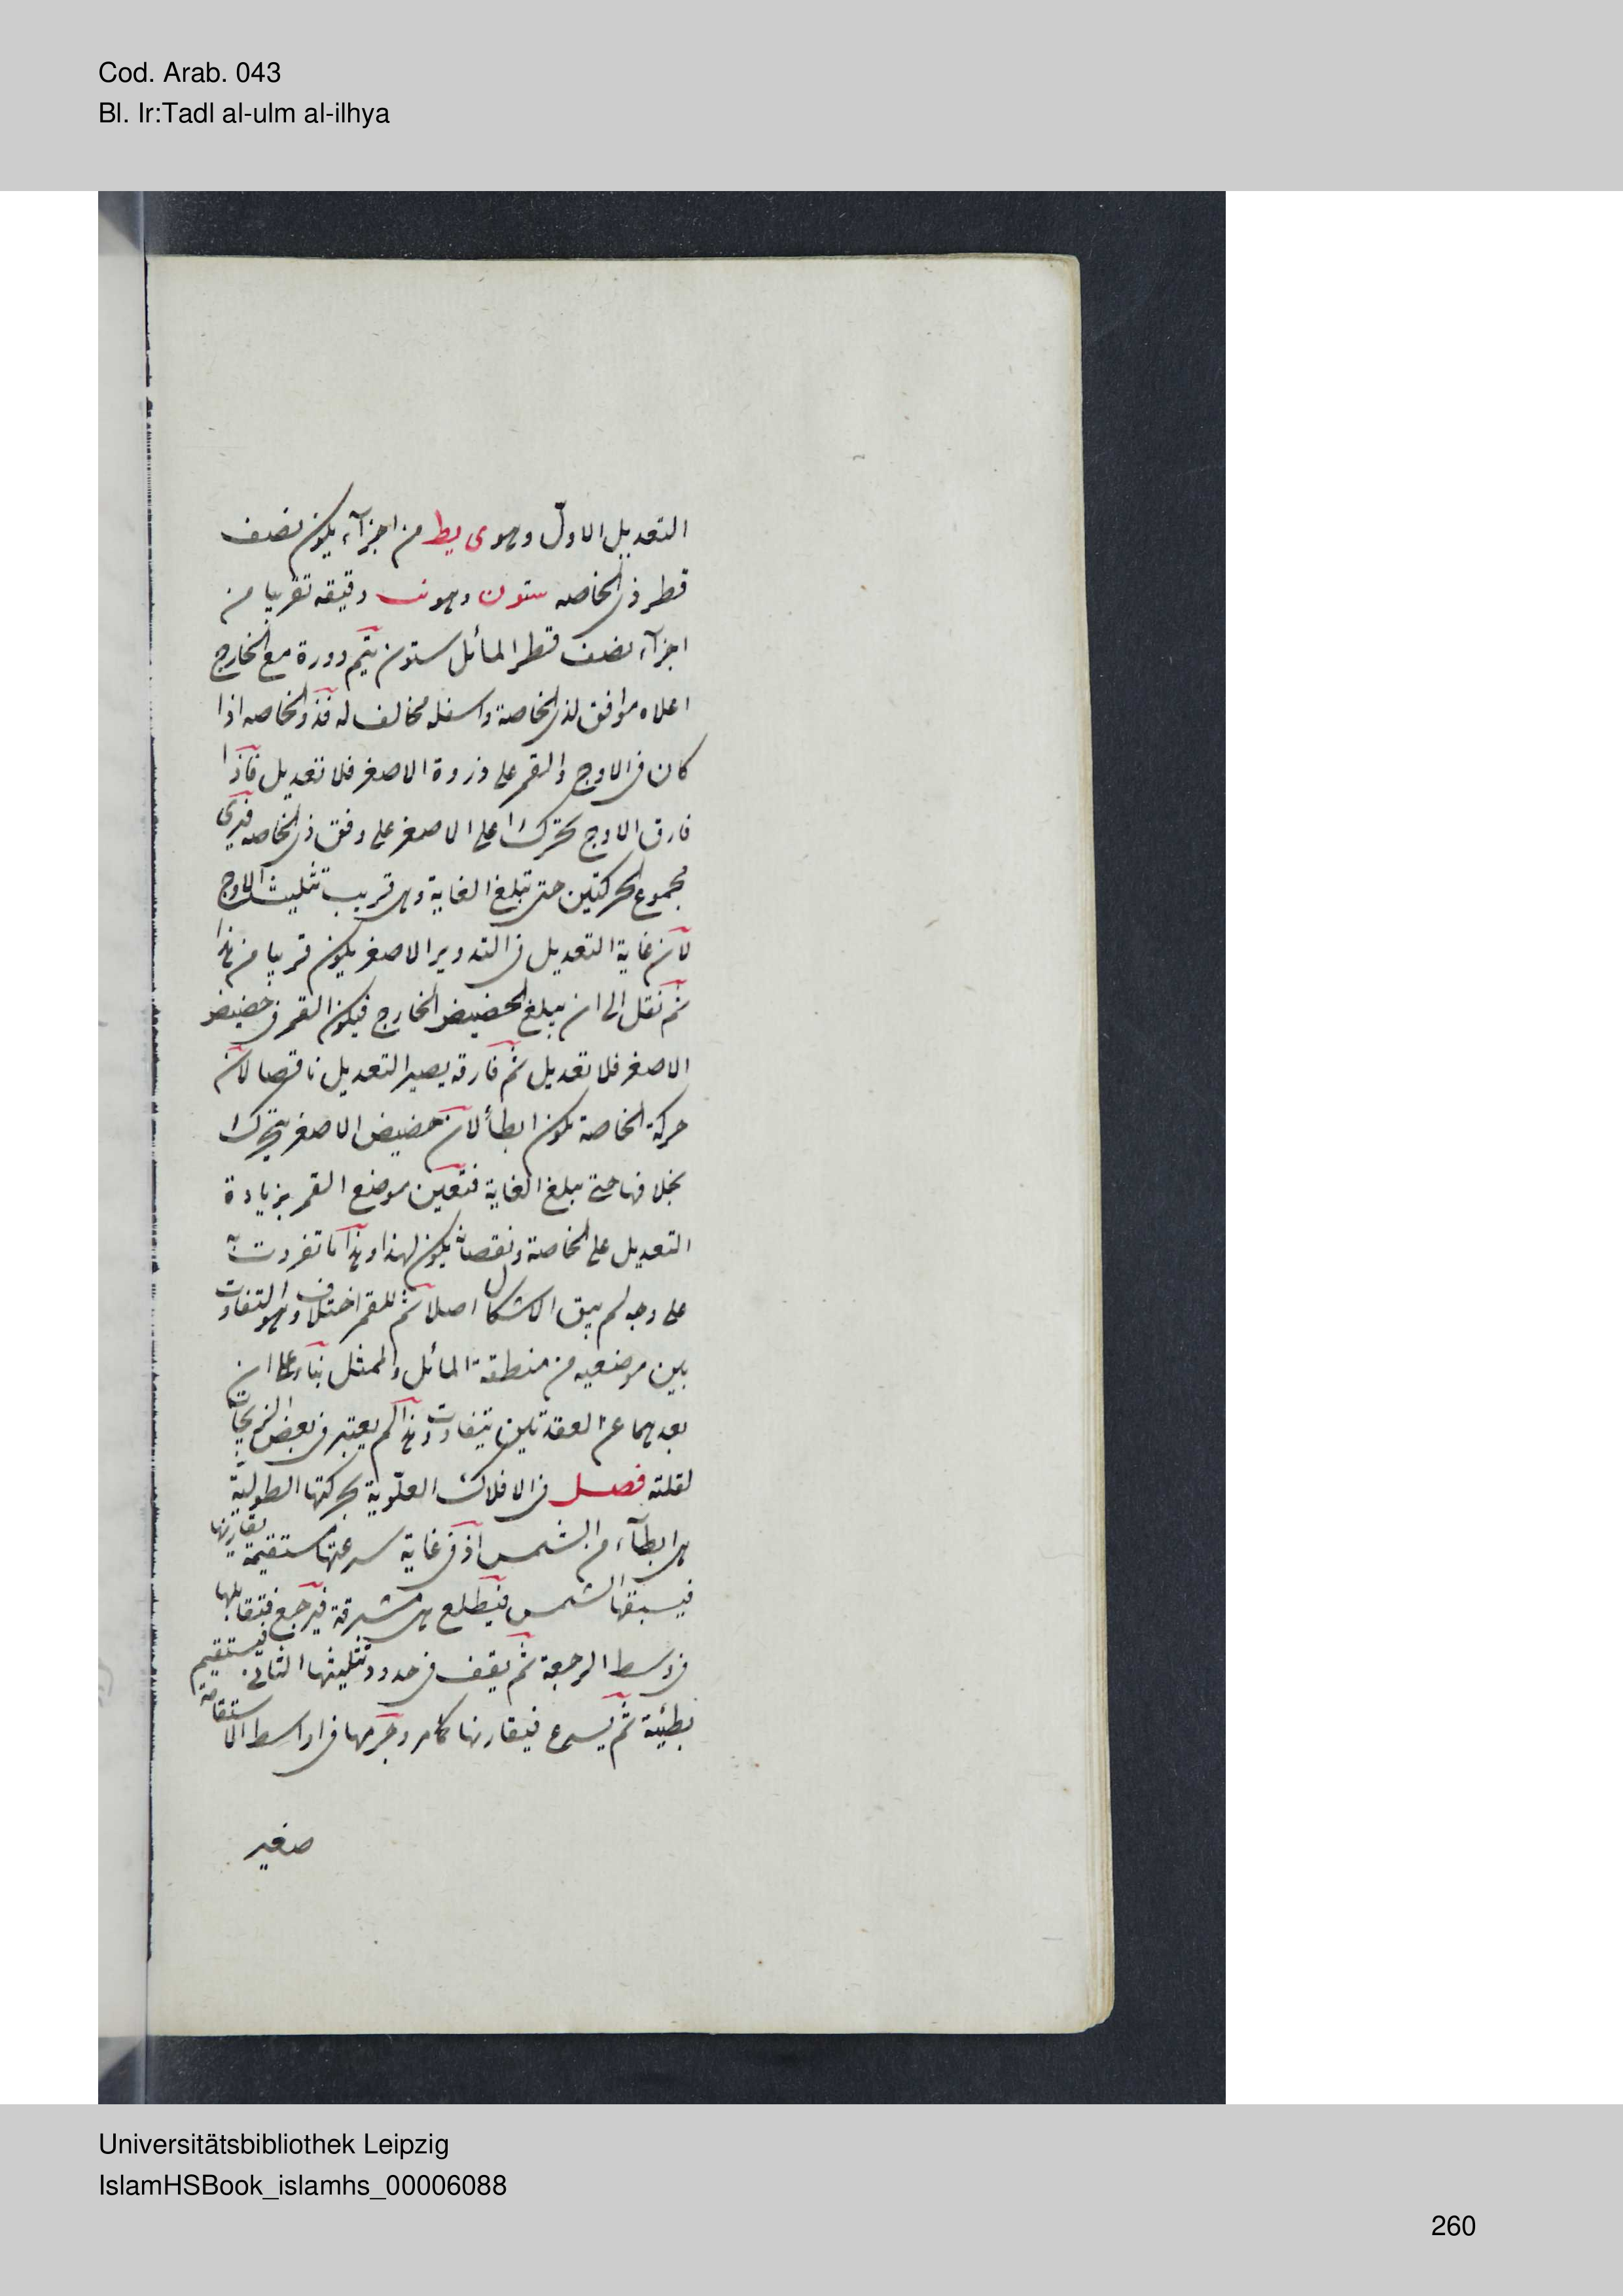 Cod. Arab. 043
Bl. Ir:Tadl al-ulm al-ilhya
التعديل الاول وهو ى يط من اجزآء يكون نصف
قطر ذى الخاصه ستون وهو نب دقيقه تقريبا من
اجزآء نصف قطر المائل ستون يتم دورة مع الخارج
اعلاه موافق لذى الخاصة واسفله مخالف له فذو الخاصه اذا
كان فى الاوج والقمر على ذروة الاصغر فلا تعديل فاذا
فارق الاوج يتحرك اعلى الاصغر على وفق ذى الخاصه فيرى
مجموع الحركتين حتى تبلغ الغاية وهى قريب تثليث الاوج
لان غاية التعديل فى التدوير الاصغر يكون قريبا من هذا
ثم تقل الى ان يبلغ الحضيض الخارج فيكون القمر فى حضيض
الاصغر فلا تعديل ثم فارقه يصير التعديل ناقصا لان
حركة الخاصة يكون ابطأ لان حضيض الاصغر يتحرك
بخلافها حتى يبلغ الغاية فتعين موضع القمر بزيادة
التعديل على الخاصة ونقصانه يكون لهذا وهذا ما تفردت به
على وجه لم يبق الاشكال اصلا ثم للقمر اختلاف وهو التفاوت
بين موضعيه من منطقة المائل والممثل بناء على ان
بعدهما عن العقدتين يتفاوت وهذا لم يعتبر فى بعض الزيجات
لقلته فصل فى الافلاك العلوية بحركتها الطولية
هى ابطآء من الشمس اذ فى غاية سرعتها مستقيمة يقارنها
فيسبقها الشمس فيطلع هى مشرقة فيرجع فتقابلها
فى وسط الرجعة ثم يقف فى حدود تثليثها الثانى فيستقيم
بطيئة ثم يسرع فيقارنها كما مر وجرمها فى اواسط الاستقامة
صغير
Universitätsbibliothek Leipzig
IslamHSBook_islamhs_00006088
260